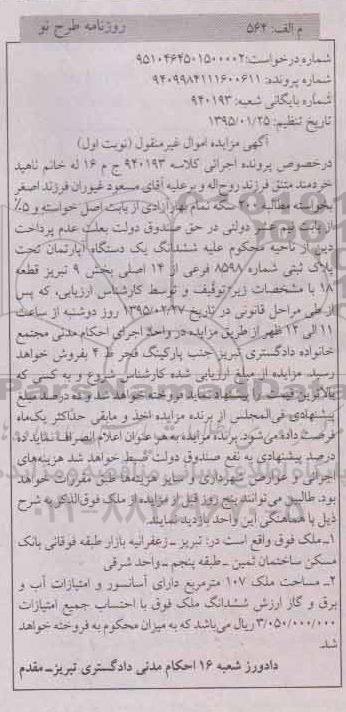 م الف: ۵۶۴ روزنامه طرح نو
شماره درخواست: ۹۵۱۰۴۶۴۵۰۱۵۰۰۰۰۲
شماره پرونده: ۹۴۰۹۹۸۴۱۱۱۶۰۰۶۱۱
شماره بایگانی شعبه: ۹۴۰۱۹۳
تاریخ تنظیم: ۱۳۹۵/۰۱/۲۵
آگهی مزایده اموال غیرمنقول (نوبت اول)
درخصوص پرونده اجرائی کلاسه ۹۴۰۱۹۳ ج م ۱۶ له خانم ناهید
خردمند متنق فرزند روح‌اله و برعلیه آقای مسعود غیوران فرزند اصغر
بخواسته مطالبه ۲۰۰ سکه تمام بهار آزادی از بابت اصل خواسته و ۵٪
از بابت نیم عشر دولتی در حق صندوق دولت بعلت عدم پرداخت
دین از ناحیه محکوم علیه ششدانگ یک دستگاه آپارتمان تحت
پلاک ثبتی شماره ۸۵۹۸ فرعی از ۱۴ اصلی بخش ۹ تبریز قطعه
۱۸ با مشخصات زیر توقیف و توسط کارشناس ارزیابی، که پس
از طی مراحل قانونی در تاریخ ۱۳۹۵/۰۲/۲۷ روز دوشنبه از ساعت
۱۱ الی ۱۲ ظهر از طریق مزایده در واحد اجرای احکام مدنی مجتمع
خانواده دادگستری تبریز جنب پارکینگ فجر ط ۴ بفروش خواهد
رسید. مزایده از مبلغ ارزیابی شده کارشناس شروع و به کسی که
بالاترین قیمت را پیشنهاد نماید فروخته خواهد شد و ده درصد مبلغ
پیشنهادی فی‌المجلس از برنده مزایده اخذ و مابقی حداکثر یک‌ماه
فرصت داده می‌شود. برنده مزایده به هر عنوان اعلام انصراف نماید ده
درصد پیشنهادی به نفع صندوق دولت ضبط خواهد شد هزینه‌های
اجرائی و عوارض شهرداری و سایر هزینه‌ها طبق مقررات خواهد
بود. طالبین می‌توانند پنج روز قبل از مزایده از ملک فوق‌الذکر به شرح
ذیل با هماهنگی این واحد بازدید نمایند.
۱ـ ملک فوق واقع است در: تبریز ـ زعفرانیه بازار طبقه فوقانی بانک
مسکن ساختمان ثمین ـ طبقه پنجم ـ واحد شرقی
۲ـ مساحت ملک ۱۰۷ مترمربع دارای آسانسور و امتیازات آب و
برق و گاز ارزش ششدانگ ملک فوق با احتساب جمیع امتیازات
۳/۰۵۰/۰۰۰/۰۰۰ ریال می‌باشد که به میزان محکوم به فروخته خواهد
شد.
دادورز شعبه ۱۶ احکام مدنی دادگستری تبریز ـ مقدم
ParsNamadData
۰۲۱-۸۸۳۴۹۶۷۰-۵